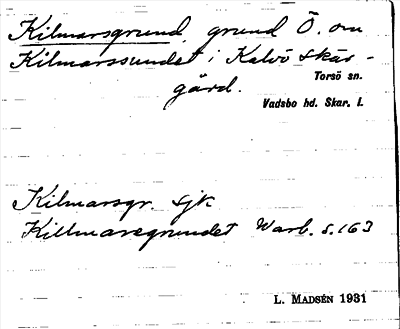 Kilmarsgrund, grund Ö. om
Kilmarssundet i Kalvö skär-
gård.
Torsö sn.
Vadsbo hd. Skar. l.
Kilmarsgr. sjk
Killmaregrundet Warb. s. 163
L. MADSÉN 1931